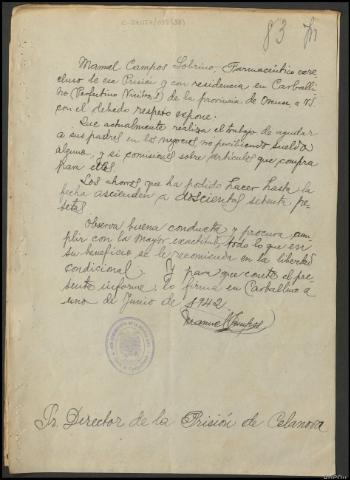 83
Manuel Campos Sobrino, Farmacéutico
recluso de esa Prisión y con residencia en Carballi-
ño de la provincia de Orense, a VS.
con el debido respeto expone.
Que actualmente realiza el trabajo de ayudar
a sus padres en los negocios no percibiendo sueldo
alguno, y si comisiones sobre artículos que compra
para ellos.
Los ahorros que ha podido hacer hasta la
fecha ascienden a doscientas setenta pe-
setas
Observa buena conducta y procura cum-
plir con la mayor exactitud, todo lo que en
su beneficio se le recomienda en la libertad
condicional. Y para que conste el pre-
sente informe, lo firma en Carballino a
uno de Junio de 1942
Manuel Campos
Sr. Director de la Prisión de Celanova